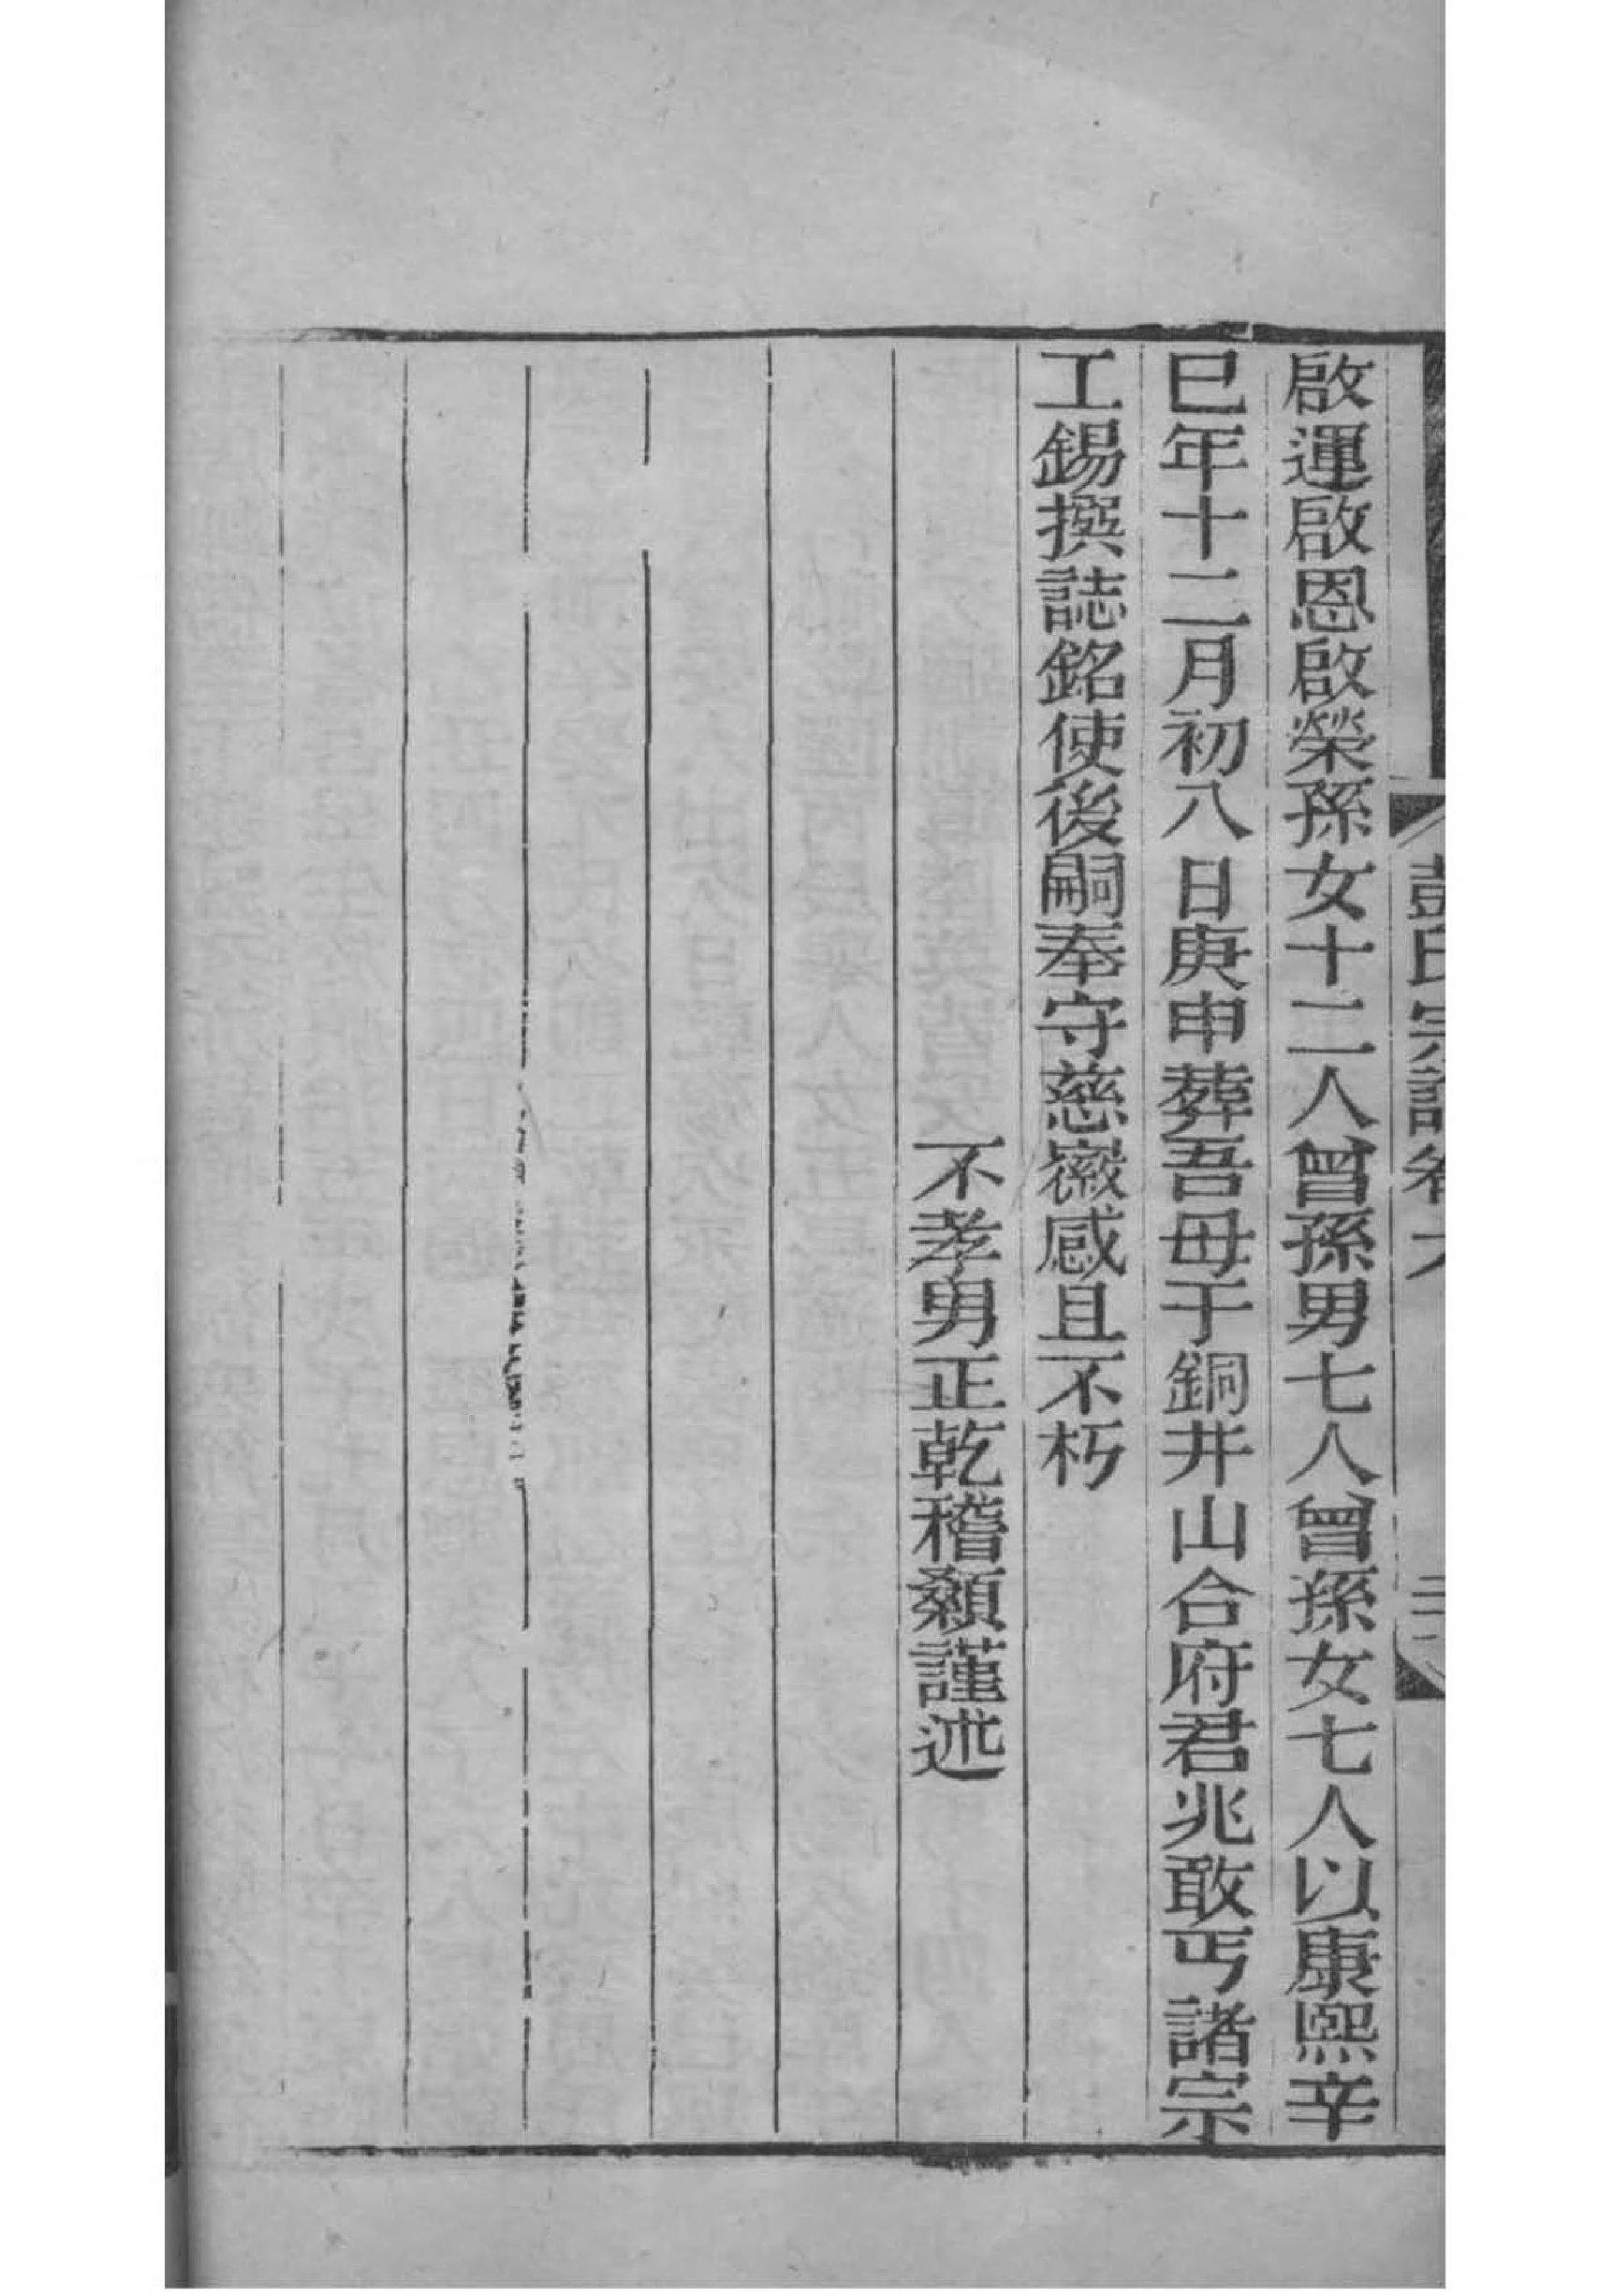 彭氏宗譜卷六
啟運啟恩啟榮孫女十二人曾孫男七人曾孫女七人以康熙辛
巳年十二月初八日庚申葬吾母于銅井山合府君兆敢丐諸宗
工錫撰誌銘使後嗣奉守慈徽感且不朽
不孝男正乾稽顙謹述